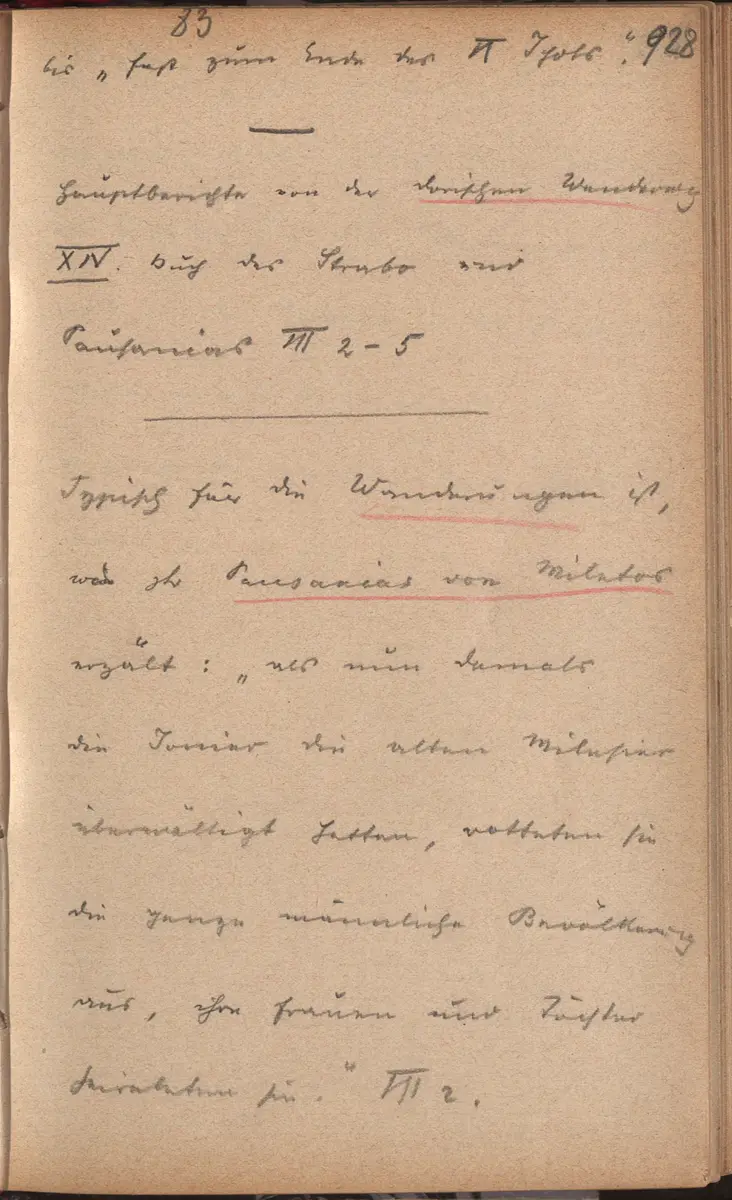 83
928
bis „fast zum Ende des VI Jhdts“.
Hauptberichte von der dorischen Wanderung
XIV. Buch des Strabo und
Pausanias VII 2-5
Typisch für die Wanderungen ist,
was Pausanias von Miletos
erzält: „als nun damals
die Ionier die alten Milesier
überwältigt hatten, rotteten sie
die ganze männliche Bevölkerung
aus, ihre Frauen und Töchter
heirateten sie.“ VII 2.